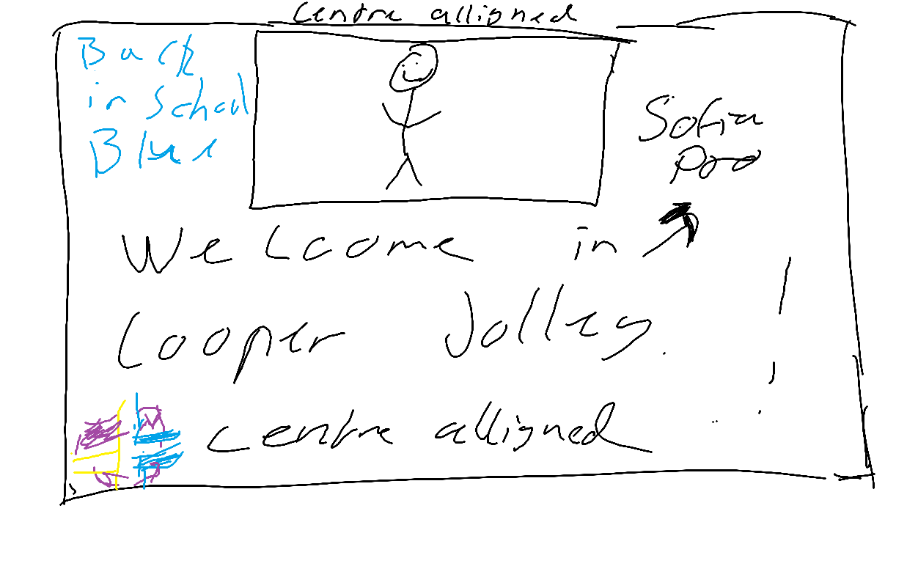 Centre alligned
Back
in School
Blue
Sofia
Pro
Welcome in
Cooper Jolley
!
Centre alligned